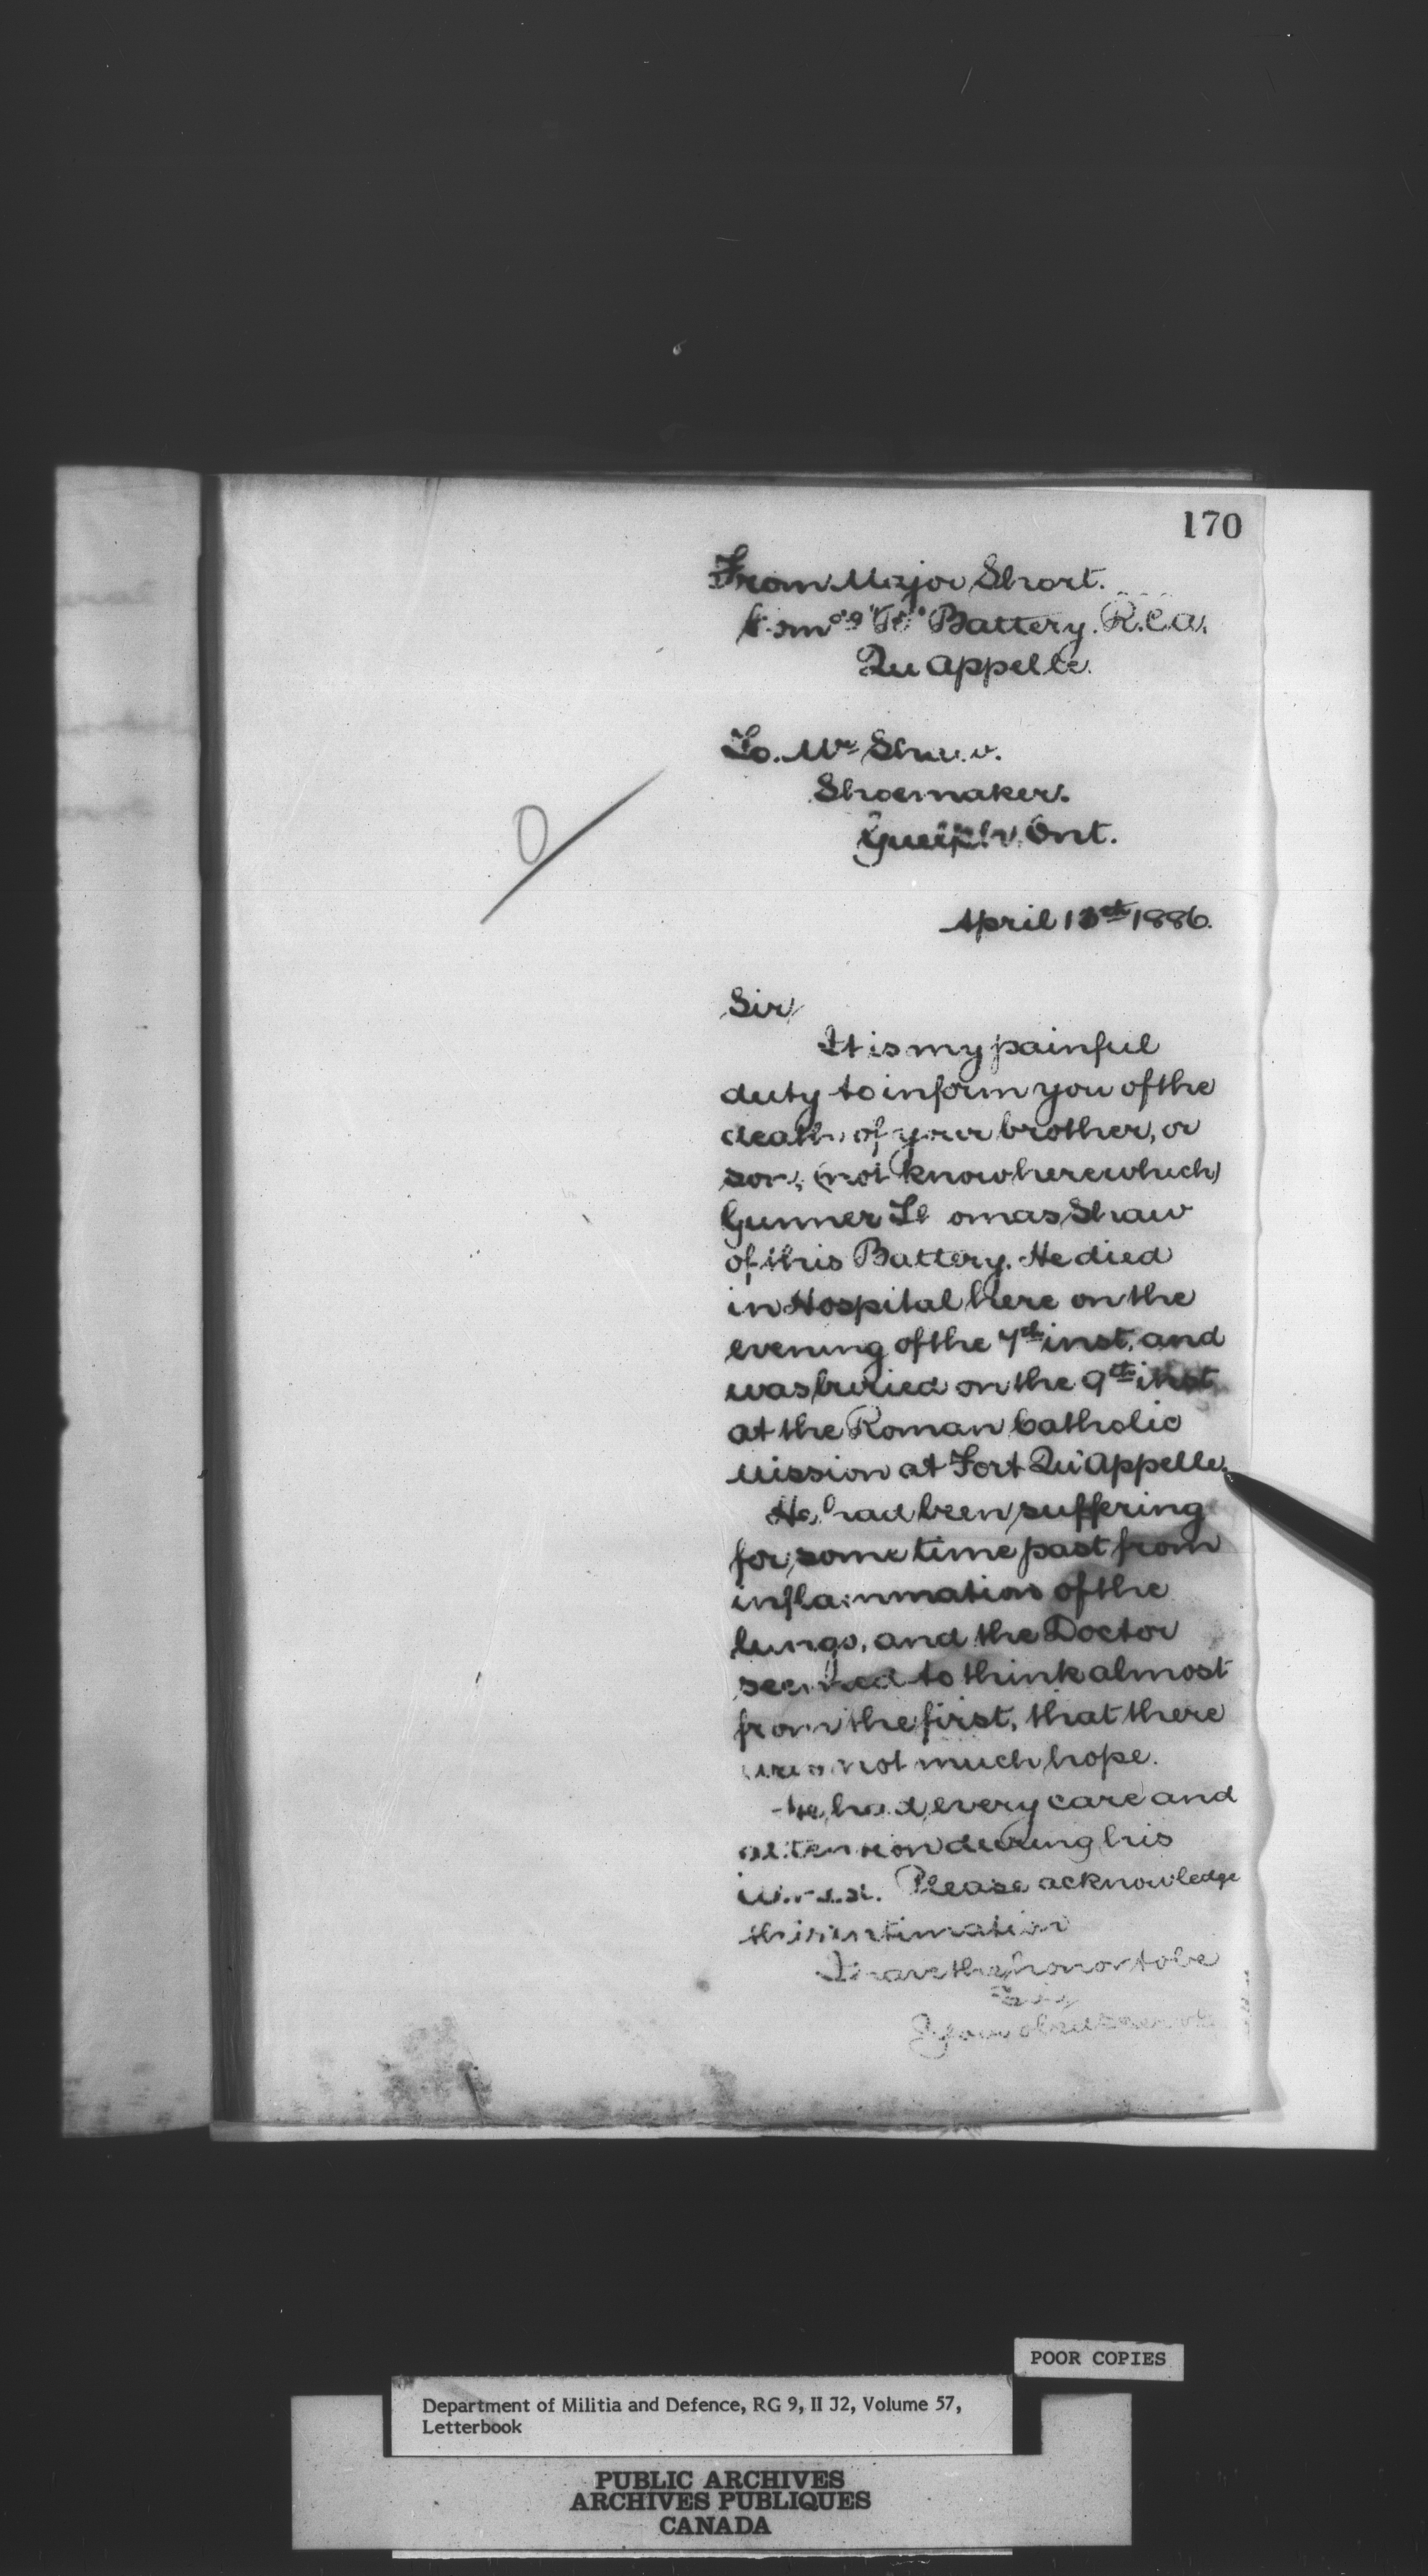 170
From Major Short.
Battery. R.C.A.
Qu'Appelle.
To. Mr Shaw.
Shoemaker.
Guelph, Ont.
April 13th 1886.
Sir,
It is my painful
duty to inform you of the
death of your brother, or
son, (not know here which)
Gunner Thomas Shaw
of this Battery. He died
in Hospital here on the
evening of the 7th inst, and
was buried on the 9th inst
at the Roman Catholic
Mission at Fort Qu'Appelle.
He had been suffering
for some time past from
inflammation of the
lungs, and the Doctor
seemed to think almost
from the first, that there
was not much hope.
He had every care and
attention during his
illness. Please acknowledge
this intimation
I have the honor to be
Sir
Your
POOR COPIES
Department of Militia and Defence, RG 9, II J2, Volume 57,
Letterbook
PUBLIC ARCHIVES
ARCHIVES PUBLIQUES
CANADA